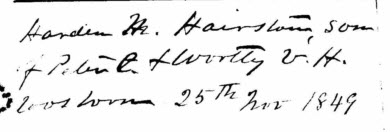 Harden M. Hairston, son
of Peter C. & Worthy V. H.
was born 25th Nov 1849